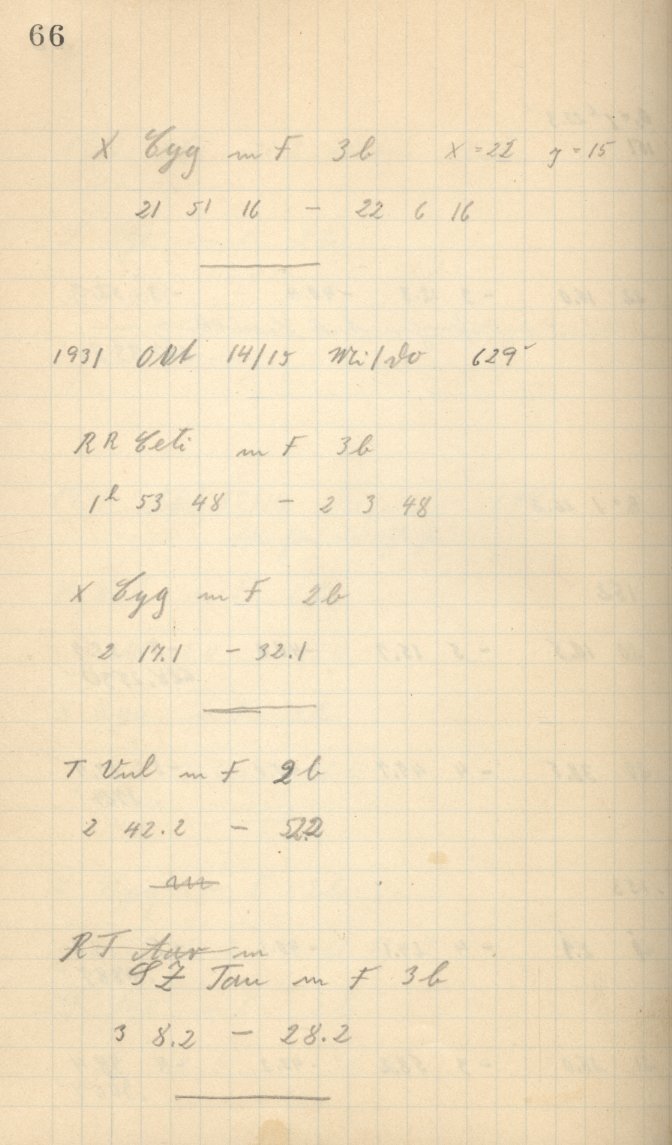 66
X Cyg m F 3b x = 22 y = 15
21 51 16 – 22 6 16
1931 Okt 14/15 Mi/Do 629
RR Ceti m F 3b
1h 53 48 – 2 3 48
X Cyg m F 2b
2 17.1 – 32.1
T Vul m F 2b
2 42.2 – 52.2
RT Aur m
SZ Tau m F 3b
3 8.2 – 28.2